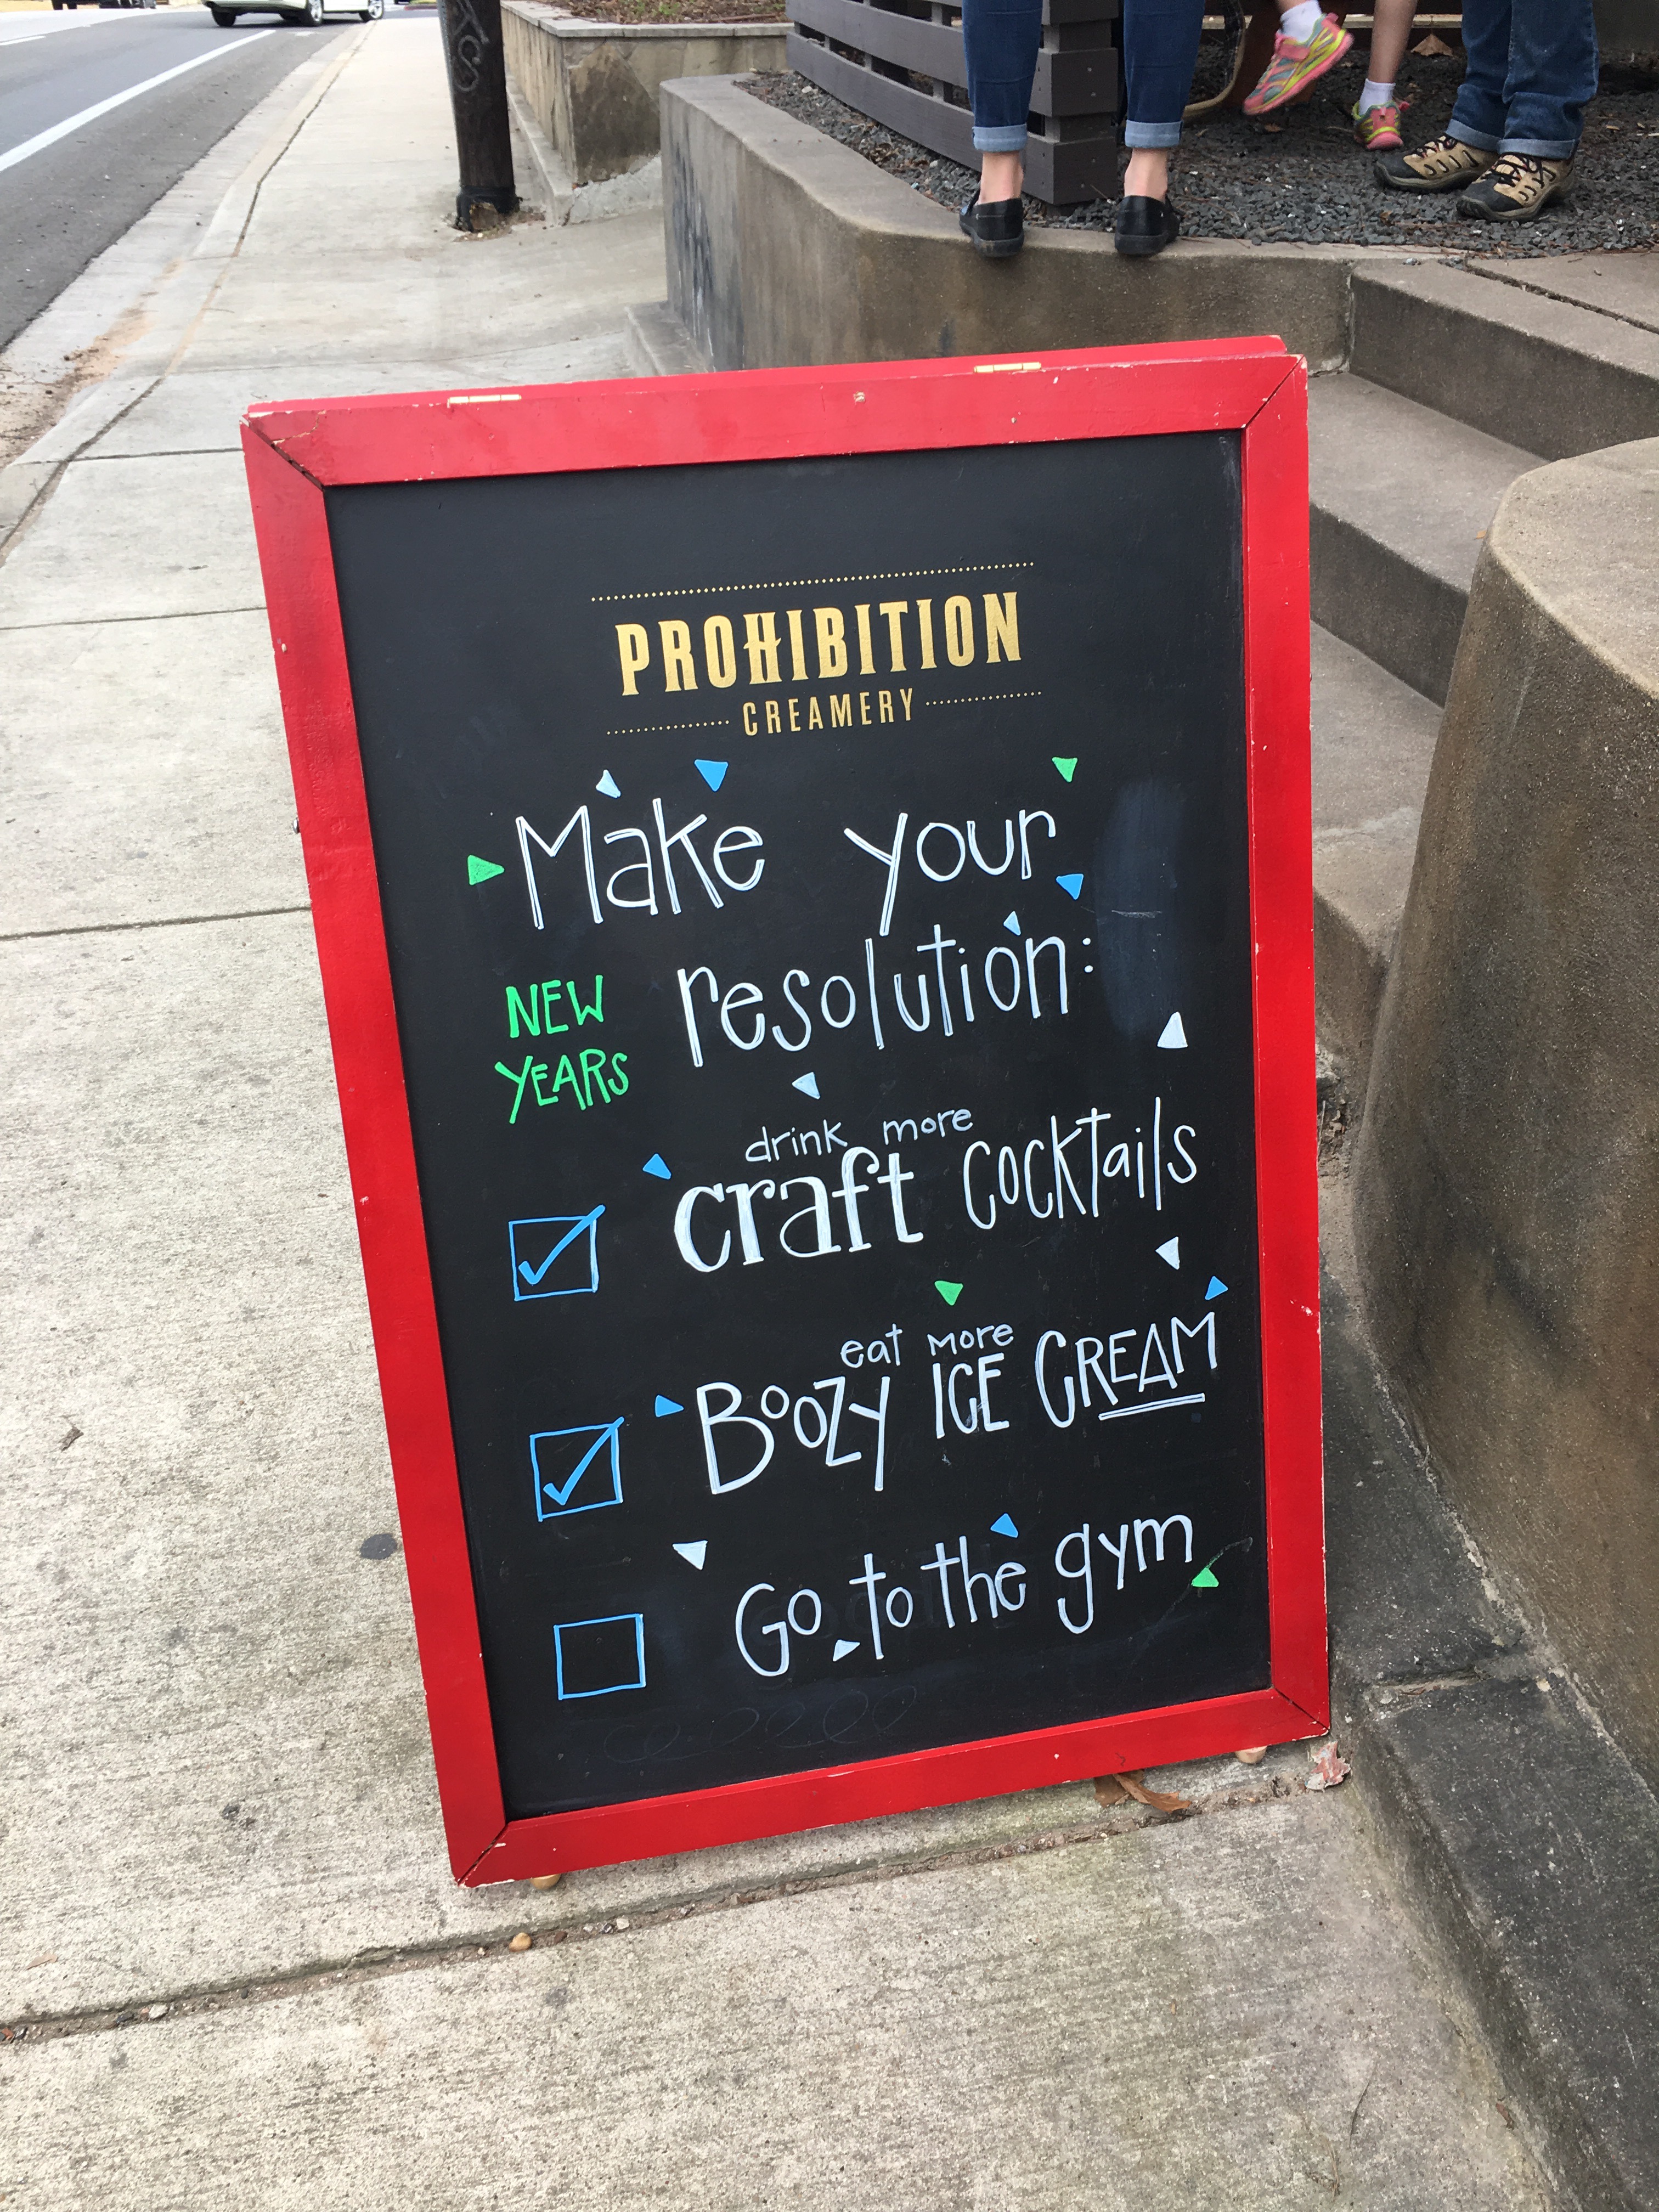 PROHIBITION
CREAMERY
Make your
NEW YEARS resolution:
drink more
craft cocktails
eat more
BOOZY ICE CREAM
Go to the gym